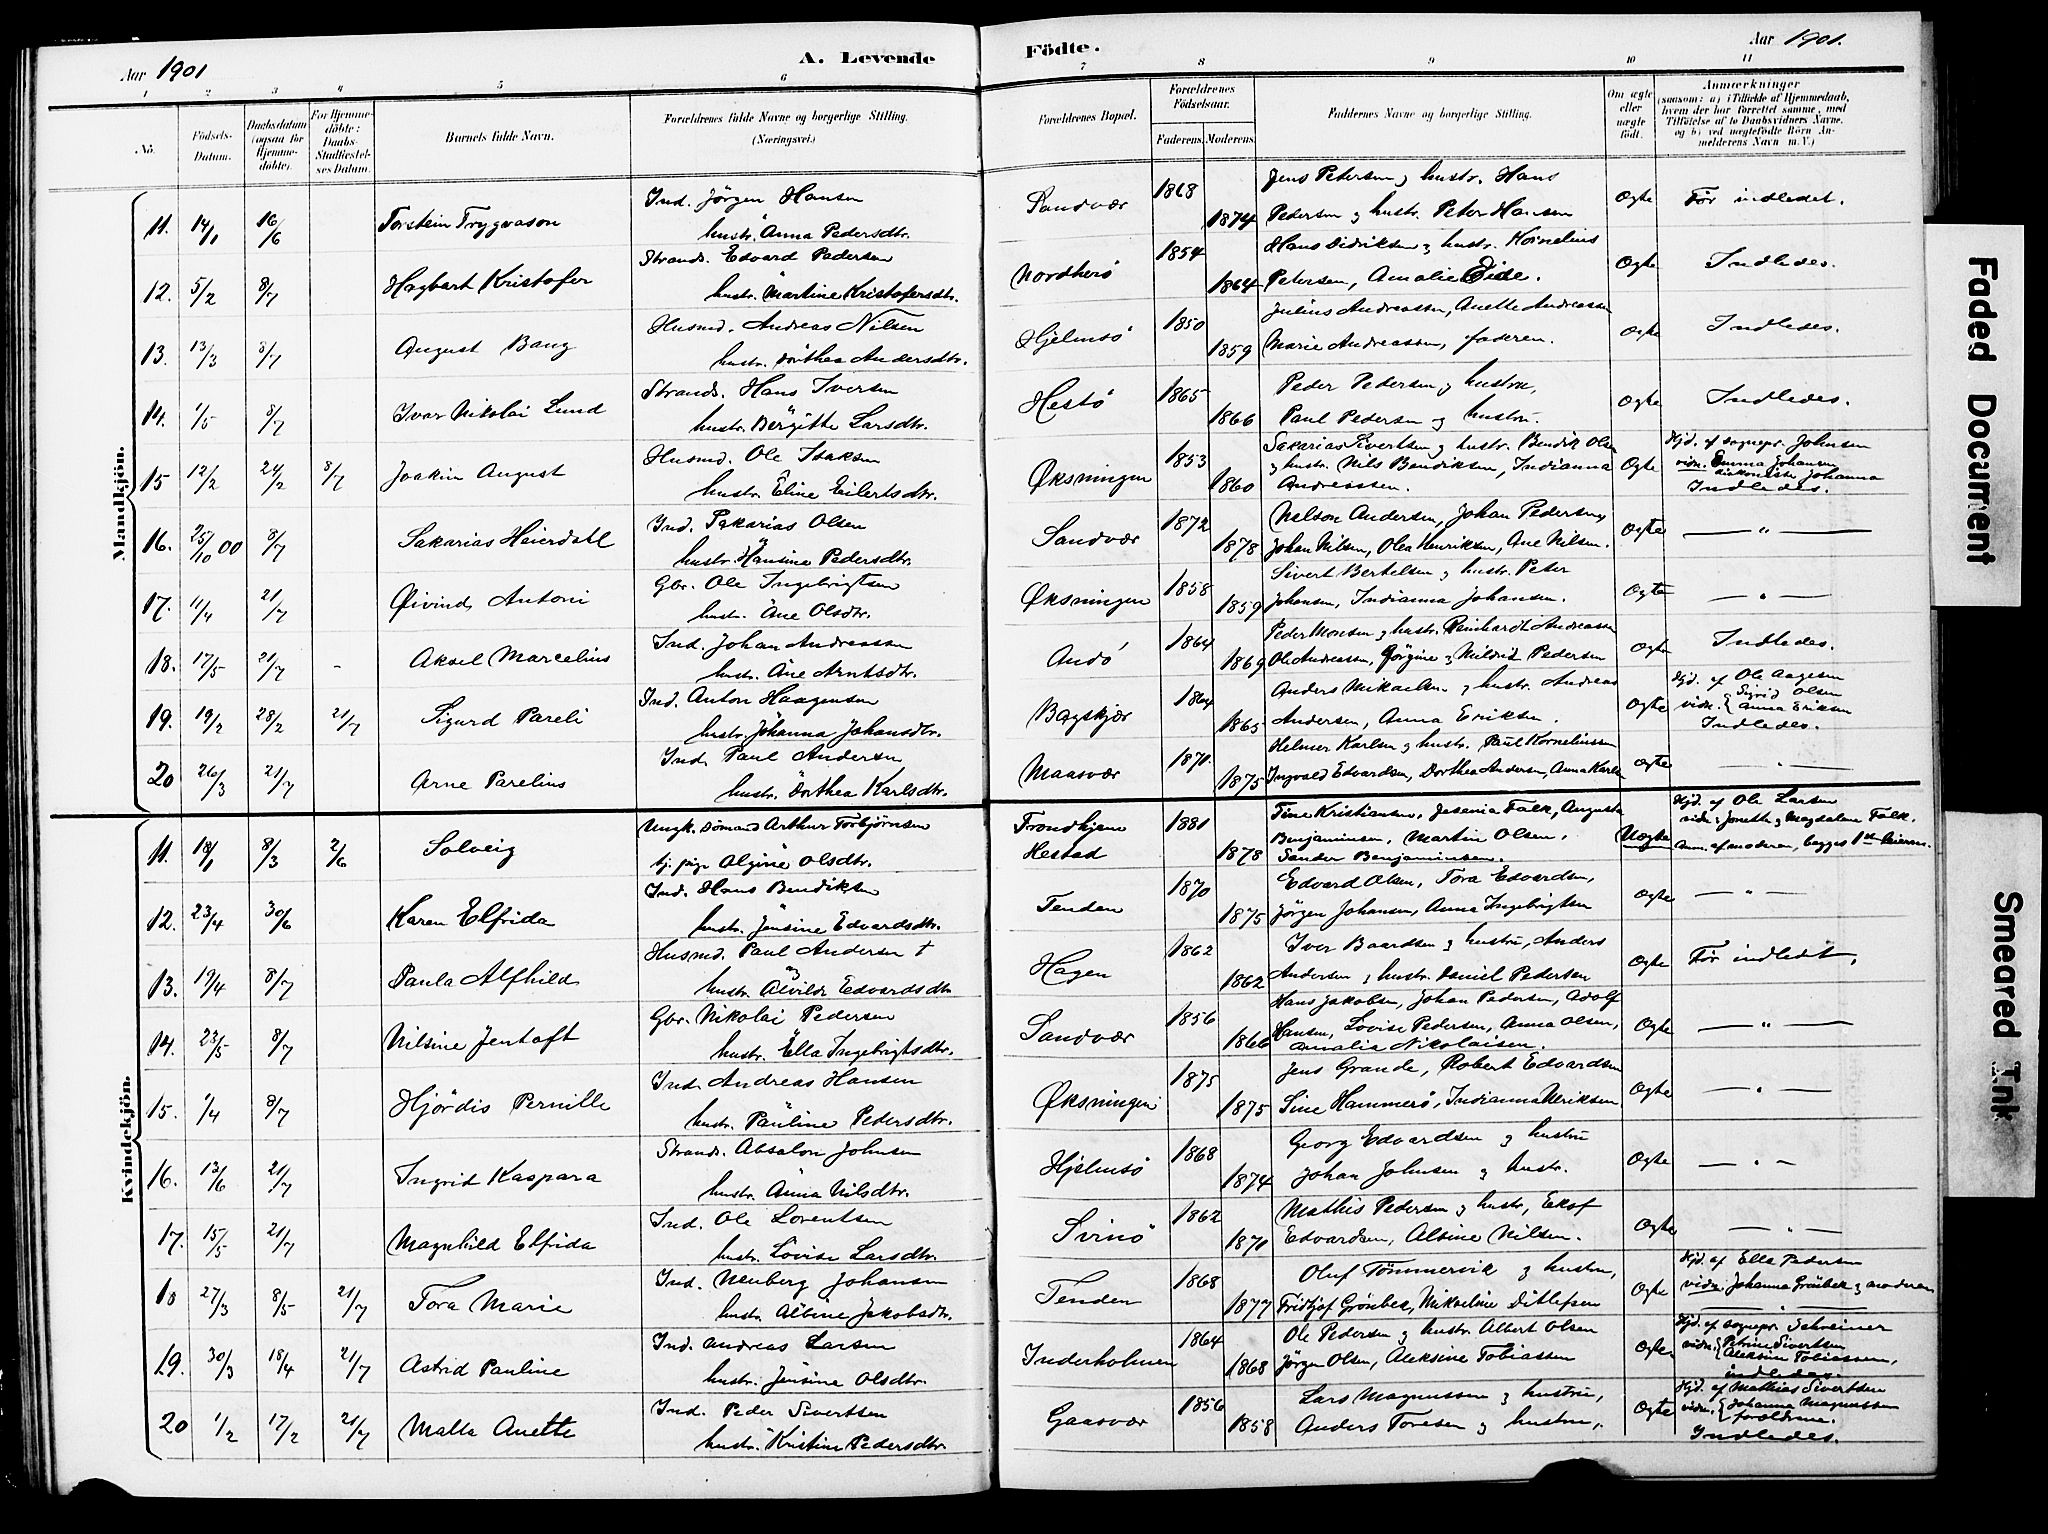 Aar 1901
A. Levende
Födte.
Aar 1901.
1 2 3 4 5 6 7 8 9 10 11
Nö.
Födsels-Datum.
Daabsdatum (ogsaa for Hjemme-döbte).
For Hjemme-döbte: Daabs-Stadfæstelses Datum.
Barnets fulde Navn.
Forældrenes fulde Navne og borgerlige Stilling. (Næringsvei.)
Forældrenes Bopæl.
Forældrenes Födselsaar.
Faderens. Moderens.
Faddernes Navne og borgerlige Stilling.
Om ægte eller uægte födt.
Anmærkninger
(saasom: a) i Tilfælde af Hjemmedaab, hvem der har forrettet samme, med Tilföielse af to Daabsvidners Navne, og b) ved uægtefödte Börn Anmelderens Navn m.V.)
Mandkjön.
11. 14/1 16/6 Torstein Trygvason Ind. Jörgen Hansen Sandvær 1868 Jens Petersen og hustr. Hans Ægte Før indledet.
hustr. Anna Pedersdtr. 1874 Pedersen og hustr. Peter Hansen
12. 5/2 8/7 Hagbart Kristofer Strands. Edvard Pedersen Nordherö 1854 Hans Didriksen og hustr. Kornelius Ægte Indledes.
hustr. Martine Kristofersdtr. 1864 Petersen, Amalie Eide.
13. 13/3 8/7 August Bang Husmd. Andreas Nilsen Hjelmsö 1850 Julius Andreassen, Anette Andreassen Ægte Indledes.
hustr. Dorthea Andersdtr. 1859 Marie Andreassen, faderen.
14. 1/5 8/7 Ivar Nikolai Lund Strands. Hans Iversen Hestö 1865 Peder Pedersen og hustru, Ægte Indledes.
hustr. Bergitte Larsdtr. 1866 Paul Pedersen og hustru.
15 12/2 24/2 8/7 Joakim August Husmd. Ole Isaksen Øksningen 1853 Sakarias Sivertsen og hustr. Bendik Olsen Ægte Hjd. af sognepr. Johnsen
hustr. Eline Eilertsdtr. 1860 og hustr. Nils Bendiksen, Indianna Andreassen. vidn. Emma Johansen diakonisse Johanna
Indledes.
16. 25/10 00 8/7 Sakarias Heierdahl Ind. Sakarias Olsen Sandvær 1872 Nelson Andersen, Johan Pedersen, Ægte — " —
hustr. Hansine Pedersdtr. 1878 Johan Nilsen, Olea Henriksen, Ane Nilsen.
17. 11/4 21/7 Øivind Antoni Gbr. Ole Ingebrigtsen Øksningen 1858 Sivert Bertelsen og hustr. Peter Ægte — " —
hustr. Ane Olsdtr. 1859 Johansen, Indianna Johansen.
18. 17/5 21/7 - Aksel Marcelius Ind. Johan Andreassen Andö 1864 Peder Monsen og hustr. Reinhardt Andreassen Ægte Indledes.
hustr. Ane Arntsdtr. 1869 Ole Andreassen, Jörgine og Mildrid Pedersen
19. 19/2 28/2 21/7 Sigurd Pareli Ind. Anton Haagensen Bagskjær 1864 Anders Mikaelsen og hustr. Andreas Ægte Hjd. af Ole Aagesen
hustr. Johanna Johansdtr. 1865 Andersen, Anna Eriksen. vidn. Sigrid Olsen Anna Eriksen
Indledes.
20 26/3 21/7 Arne Parelius Ind. Paul Andersen Maasvær 1870 Helmer Karlsen og hustr. Paul Kornelius en Ægte — " —
hustr. Dorthea Karlsdtr. 1875 Ingvald Edvardsen, Dorthea Andersen, Anna Karlsen
Kvindekjön.
11. 18/1 8/3 2/6 Solveig Ungk. sömand Arthur Torbjörnsen Trondhjem 1881 Tine Kristiansen, Jesenia Falk, Augusta Uægte Hjd. af Ole Larsen
tj. pige Algine Olsdtr. Hestad 1878 Benjaminsen, Martin Olsen, Sander Benjaminsen. vidn: Jonette og Magdalene Falk.
Anm. af moderen, begges 1ste leierm.
12. 23/4 30/6 Karen Elfrida Ind. Hans Bendiksen Tenden 1870 Edvard Olsen, Tora Edvardsen, Ægte — " —
hustr. Jensine Edvardsdtr. 1875 Jörgen Johansen, Anna Ingebrigtsen
13. 19/4 8/7 Paula Alfhild Husmd. Paul Andersen † Hagen 1862 Iver Baardsen og hustru, Anders Ægte Før indledet,
hustr. Alvilde Edvardsdtr 1862 Andersen og hustr. Daniel Pedersen
14. 23/5 8/7 Nilsine Jentoft Gbr. Nikolai Pedersen Sandvær 1856 Hans Jakobsen, Johan Pedersen, Adolf Ægte — " —
hustr. Ella Ingebrigtsdtr. 1866 Hansen, Lovise Pedersen, Anna Olsen, Amalia Nikolaisen.
15. 1/4 8/7 Hjördis Pernille Ind. Andreas Hansen Øksningen 1875 Jens Grande, Robert Edvardsen Ægte — " —
hustr. Pauline Pedersdtr. 1875 Sine Hammerö, Indianna Ulriksen
16. 13/6 21/7 Ingrid Kaspara Strands. Absalon Johnsen Hjelmsö 1868 Georg Edvardsen og hustru Ægte — " —
hustr. Anna Nilsdtr. 1874 Johan Johnsen og hustr.
17. 15/5 21/7 Magnhild Elfrida Ind. Ole Lorentsen Svinö 1862 Mathis Pedersen og hustr, Eksof Ægte — " —
hustr. Lovise Larsdtr. 1870 Edvardsen, Alsine Nilsen.
18 27/3 8/5 21/7 Tora Marie Ind. Nenberg Johansen Tenden 1868 Oluf Tömmervik og hustru, Ægte Hjd. af Ella Pedersen
hustr. Albine Jakobsdtr. 1877 Fridtjof Grönbek, Mikaeline Ditlefsen vidn. Johanna Grönbek og moderen
— " —
19. 30/3 18/4 21/7 Astrid Pauline Ind. Andreas Larsen Inderholmen 1864 Ole Pedersen og hustr. Albert Olsen Ægte Hjd. af sognepr. Schreiner
hustr. Jensine Olsdtr. 1868 Jörgen Olsen, Aleksine Tobiassen vidn. Petrine Sivertsen Aleksine Tobiassen,
indledes.
20 1/2 17/2 21/7 Malla Anette Ind. Peder Sivertsen Gaasvær 1856 Lars Magnussen og hustru, Ægte Hjd. af Mathias Sivertsen
hustr. Kristine Pedersdtr. 1858 Anders Toresen og hustru. vidn. Johanna Magnussen forældrene.
Indledes.
Faded Document
Smeared Ink